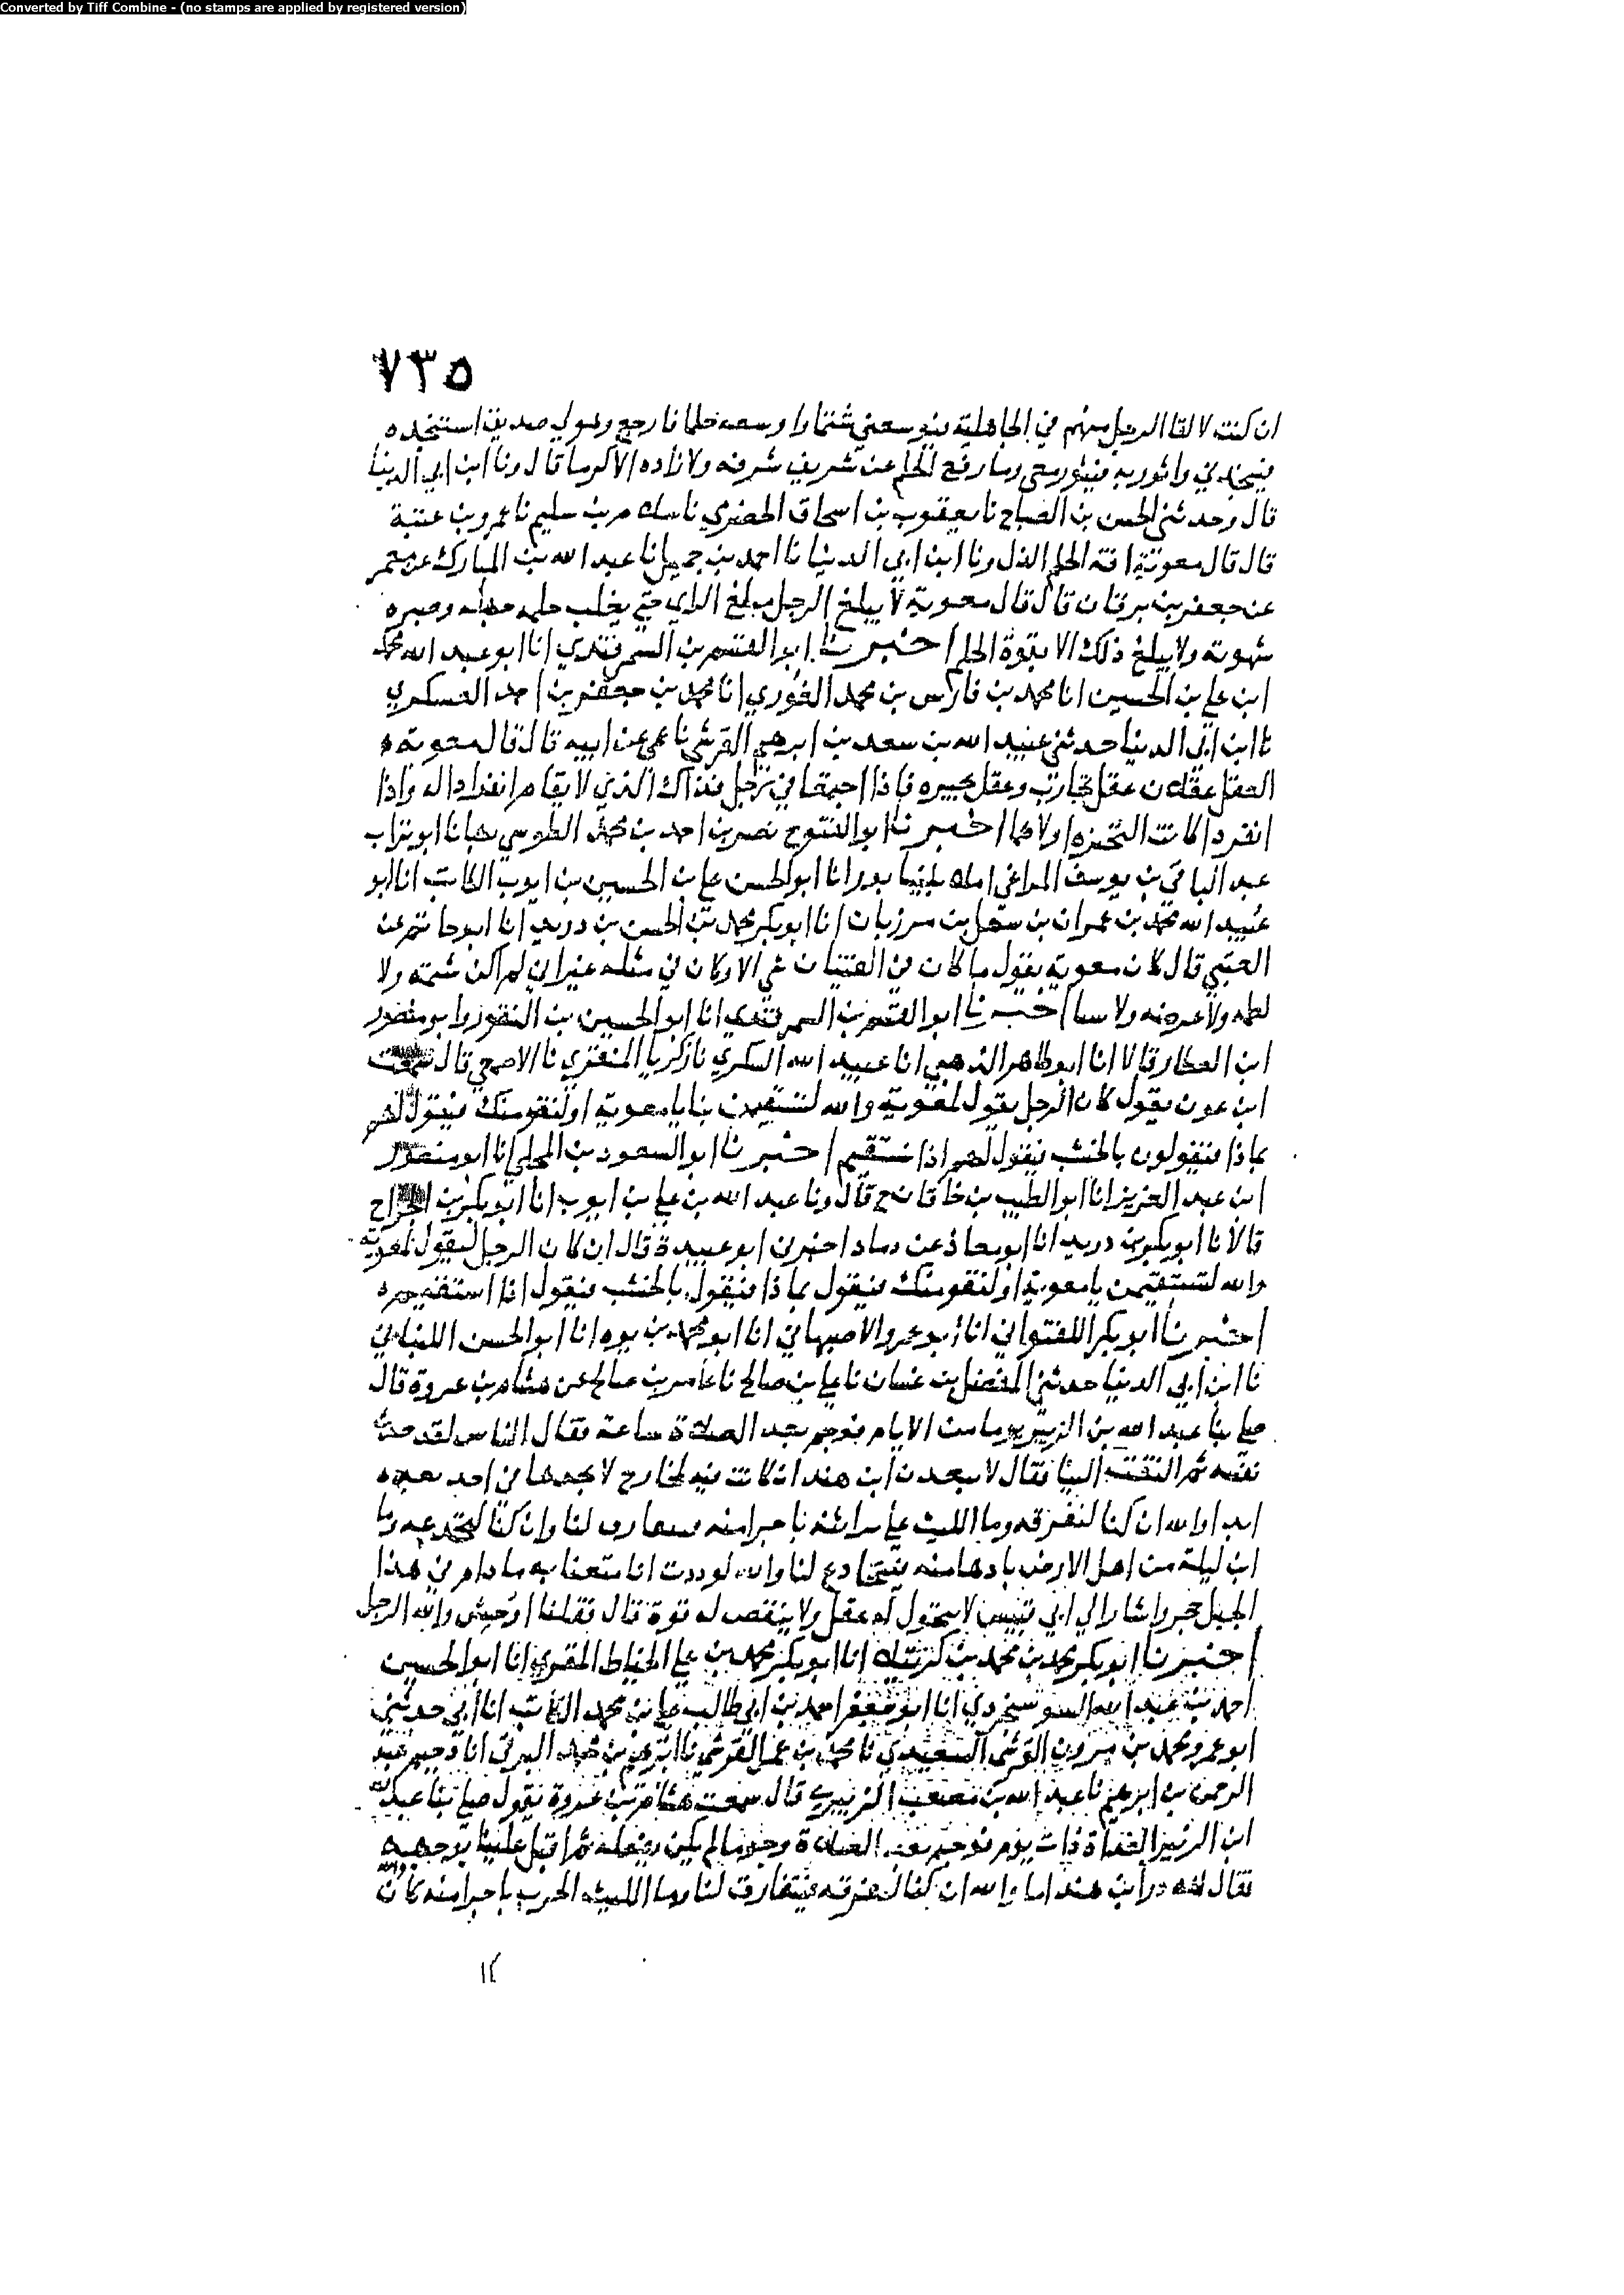 Converted by Tiff Combine - (no stamps are applied by registered version)
٧٣٥
ان كنت لالقا الرجل منهم في الجاهلية فيوسعني شتما واوسعه حلما فارجع وهو لي صديق استنجده
فينجدني واثور به فيثور معي وما رفع الحلم عن شريف شرفه ولا زاده الا كرما قال ونا ابن ابي الدنيا
قال وحدثني الحسن بن الصباح نا يعقوب بن اسحاق الحضرمي نا سلام بن سليم نا عمرو بن عتبة
قال قال معوية افة الحلم الذل ونا ابن ابي الدنيا نا احمد بن جميل نا عبد الله بن المبارك عن معمر
عن جعفر بن برقان قال قال معوية لا يبلغ الرجل مبلغ الراي حتى يغلب حلمه جهله وصبره
شهوته ولا يبلغ ذلك الا بقوة الحلم اخبرنا ابو القسم بن السمرقندي انا ابو عبد الله محمد
ابن علي بن الحسين انا محمد بن فارس بن محمد الغوري انا محمد بن جعفر بن احمد العسكري
نا ابن ابي الدنيا حدثني عبيد الله بن سعد بن ابرهيم القرشي نا عمي عن ابيه قال قال معوية
العقل عقلان عقل تجارب وعقل نحيزه فاذا اجتمعا في رجل فذاك الذي لا يقام له واذا
انفردا كانت النحيزه اولاهما اخبرنا ابو الفتوح نصر بن احمد بن محمد الطوسي بها نا ابو تراب
عبد الباقي بن يوسف المراغي املاه بنيسابور انا ابو الحسن علي بن الحسين بن ايوب الكاتب انا ابو
عبيد الله محمد بن عمران بن سهل بن مرزبان انا ابو بكر محمد بن الحسن بن دريد انا ابو حاتم عن
العتبي قال كان معوية يقول ما كان في الفتيان شي الا وكان في مثله غير اني لم اكن شتمه ولا
ولا اخبرنا ابو القسم بن السمرقندي انا ابو الحسين بن النقور وابو منصور
ابن العطار قالا انا ابو طاهر الذهبي انا عبيد الله السكري نا زكريا المنقري نا الاصمعي قال سمعت
ابن عون يقول كان الرجل يقول لمعوية والله لتستقيمن بنا يا معوية او لنقومنك فيقول لهم
بماذا فيقولون بالخشب فيقول لهم اذا نستقيم اخبرنا ابو السعود بن المجلي انا ابو منصور
ابن عبد العزيز انا ابو الطيب بن خاقان ح قال ونا عبد الله بن علي بن ايوب انا ابو بكر بن الجراح
قالا نا ابو بكر بن دريد انا ابو معاذ عن دماد اخبرني ابو عبيدة قال ان كان الرجل ليقول لمعوية
والله لتستقيمن يا معوية او لنقومنك فيقول بماذا فيقول بالخشب فيقول اذا استقيم
اخبرنا ابو بكر اللفتواني انا ابو عمرو الاصبهاني انا ابو محمد بن يوه انا ابو الحسن اللنباني
نا ابن ابي الدنيا حدثني المفضل بن غسان نا علي بن صالح نا عامر بن صالح عن هشام بن عروة قال
صلى بنا عبد الله بن الزبير يوما من الايام فوجم بعد الصلاة ساعة فقال الناس لقد حدث
نفسه ثم التفت الينا فقال لا يبعدن ابن هند ان كانت فيه لمخارج لا نجدها في احد بعده
ابدا والله ان كنا لنفرقه وما الليث على براثنه باجرا منه فيتفارق لنا وان كنا لنخدعه وما
ابن ليلة من اهل الارض بادها منه فيتخادع لنا والله لوددت انا متعنا به ما دام في هذا
الجبل حجر واشار الى ابي قبيس لا يتخول له عقل ولا ينتقص له قوة قال فقلنا اوحش والله الرجل
اخبرنا ابو بكر محمد بن محمد بن كرتيله انا ابو بكر محمد بن علي الخياط المقري انا ابو الحسين
احمد بن عبد الله السوسنجردي انا ابو جعفر احمد بن ابي طالب علي بن محمد الكاتب انا ابي حدثني
ابو عمرو محمد بن مروان القرشي السعيدي نا محمد بن عمر القرشي نا ابرهيم بن محمد البرقي انا دحيم عبد
الرحمن بن ابرهيم نا عبد الله بن مصعب الزبيري قال سمعت هشام بن عروة يقول صلى بنا عبد الله
ابن الزبير الغداة ذات يوم فوجم بعد الصلاة وجوما لم يكن يفعله ثم اقبل علينا بوجهه
فقال لله در ابن هند اما والله ان كنا لنفرقه فيتفارق لنا وما الليث الحرب باجرا منه كان والله